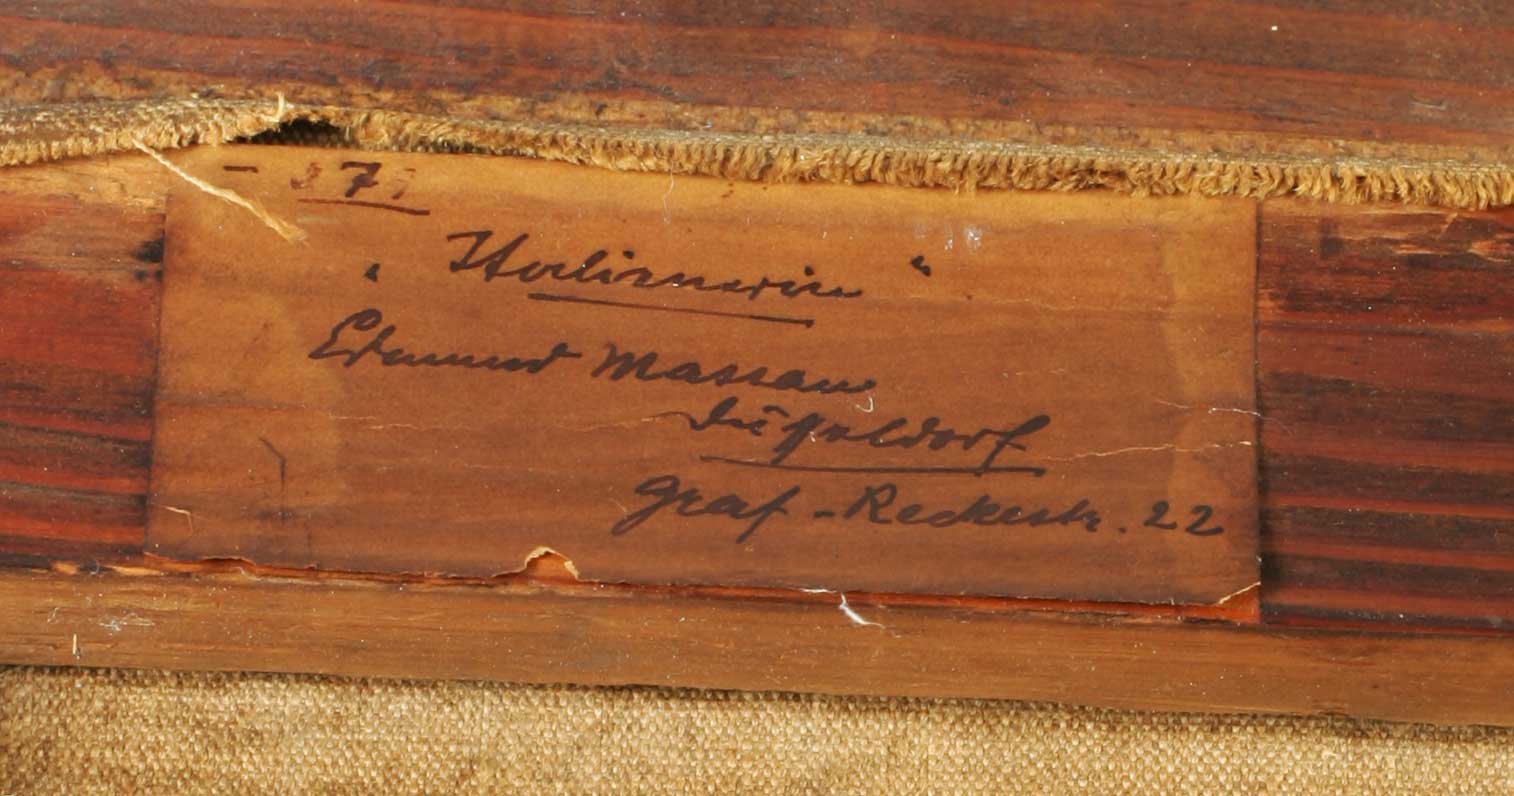 „ Italienerin “
Edmund Massau
Düsseldorf
Graf-Reckestr. 22